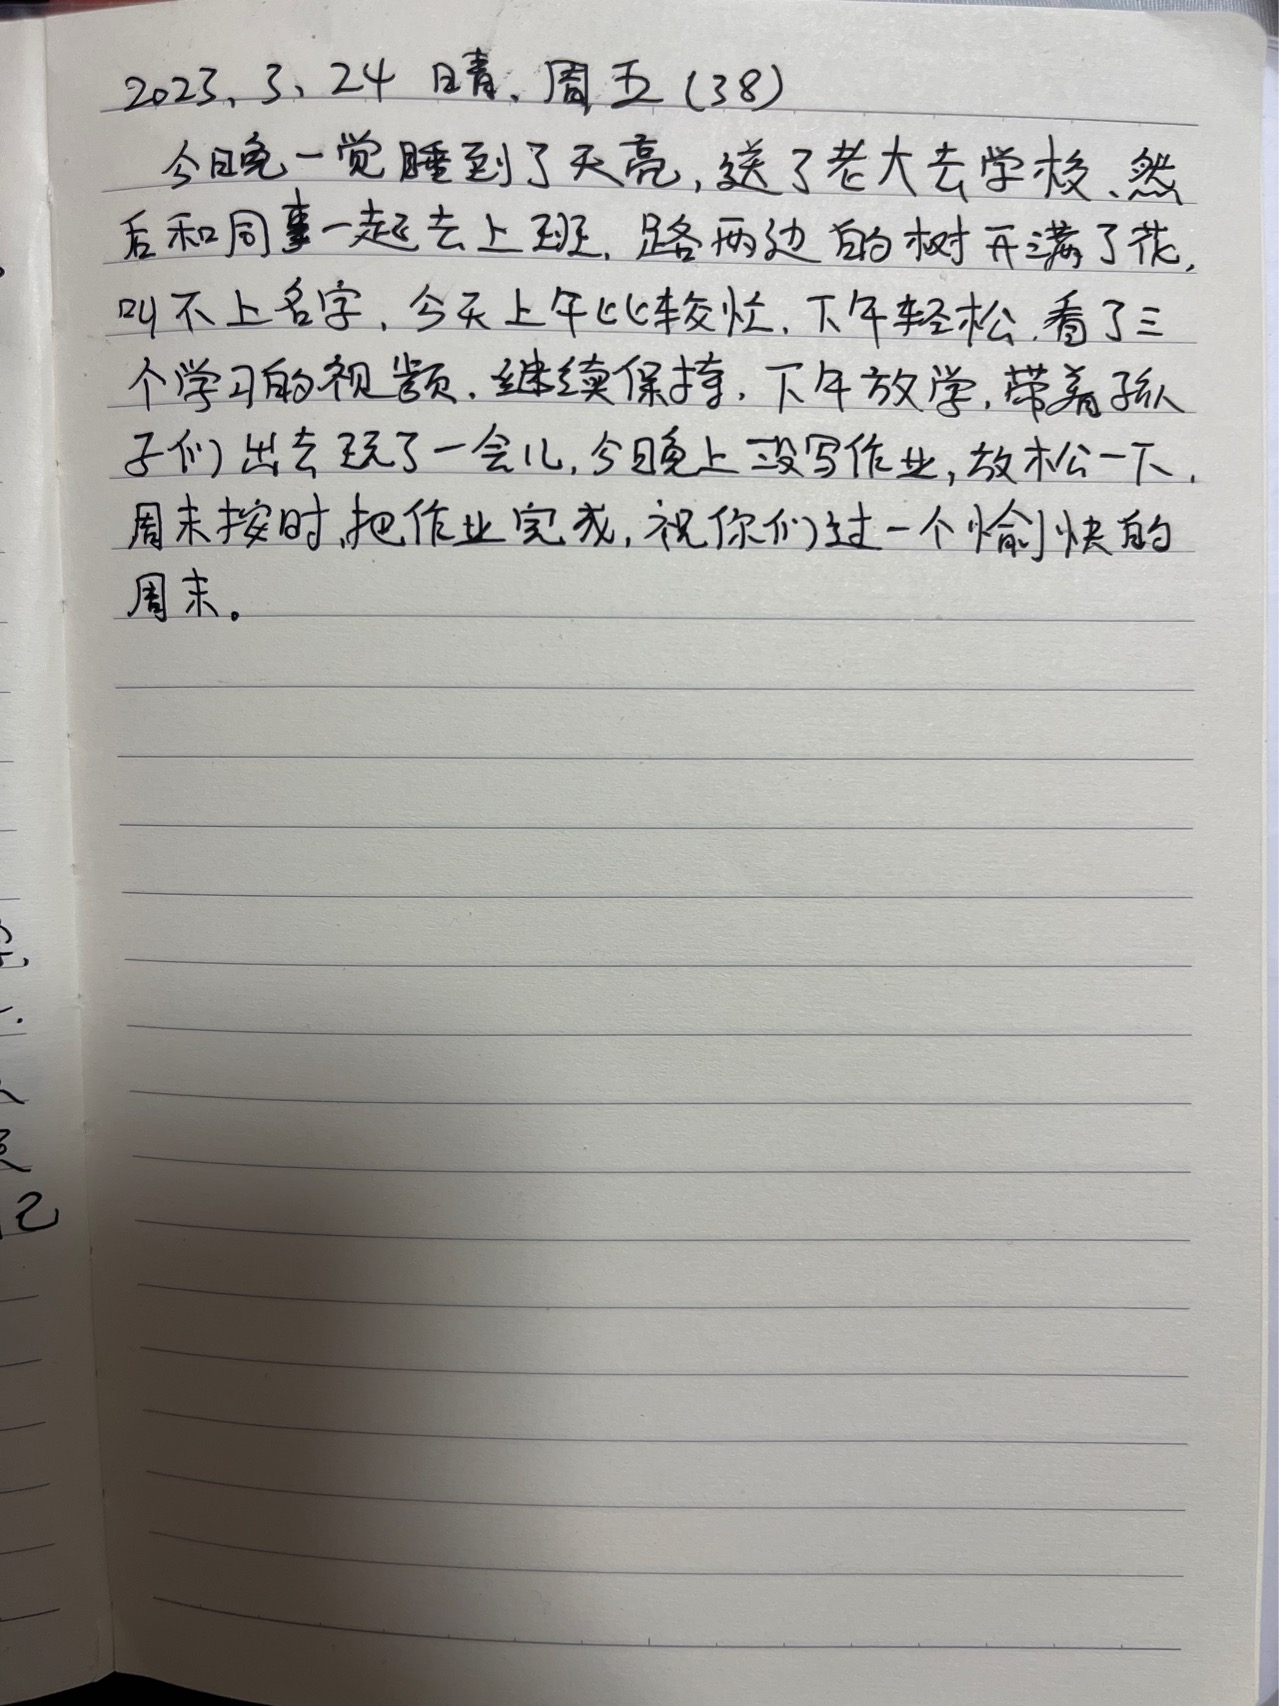 2023、3、24 晴、周五(38)
今晚一觉睡到了天亮,送了老大去学校、然
后和同事一起去上班、路两边的树开满了花,
叫不上名字、今天上午比较忙、下午轻松、看了三
个学习的视频、继续保持、下午放学,带着孩
子们出去玩了一会儿,今晚上没写作业,放松一下、
周末按时、把作业完成,祝你们过一个愉快的
周末。
己